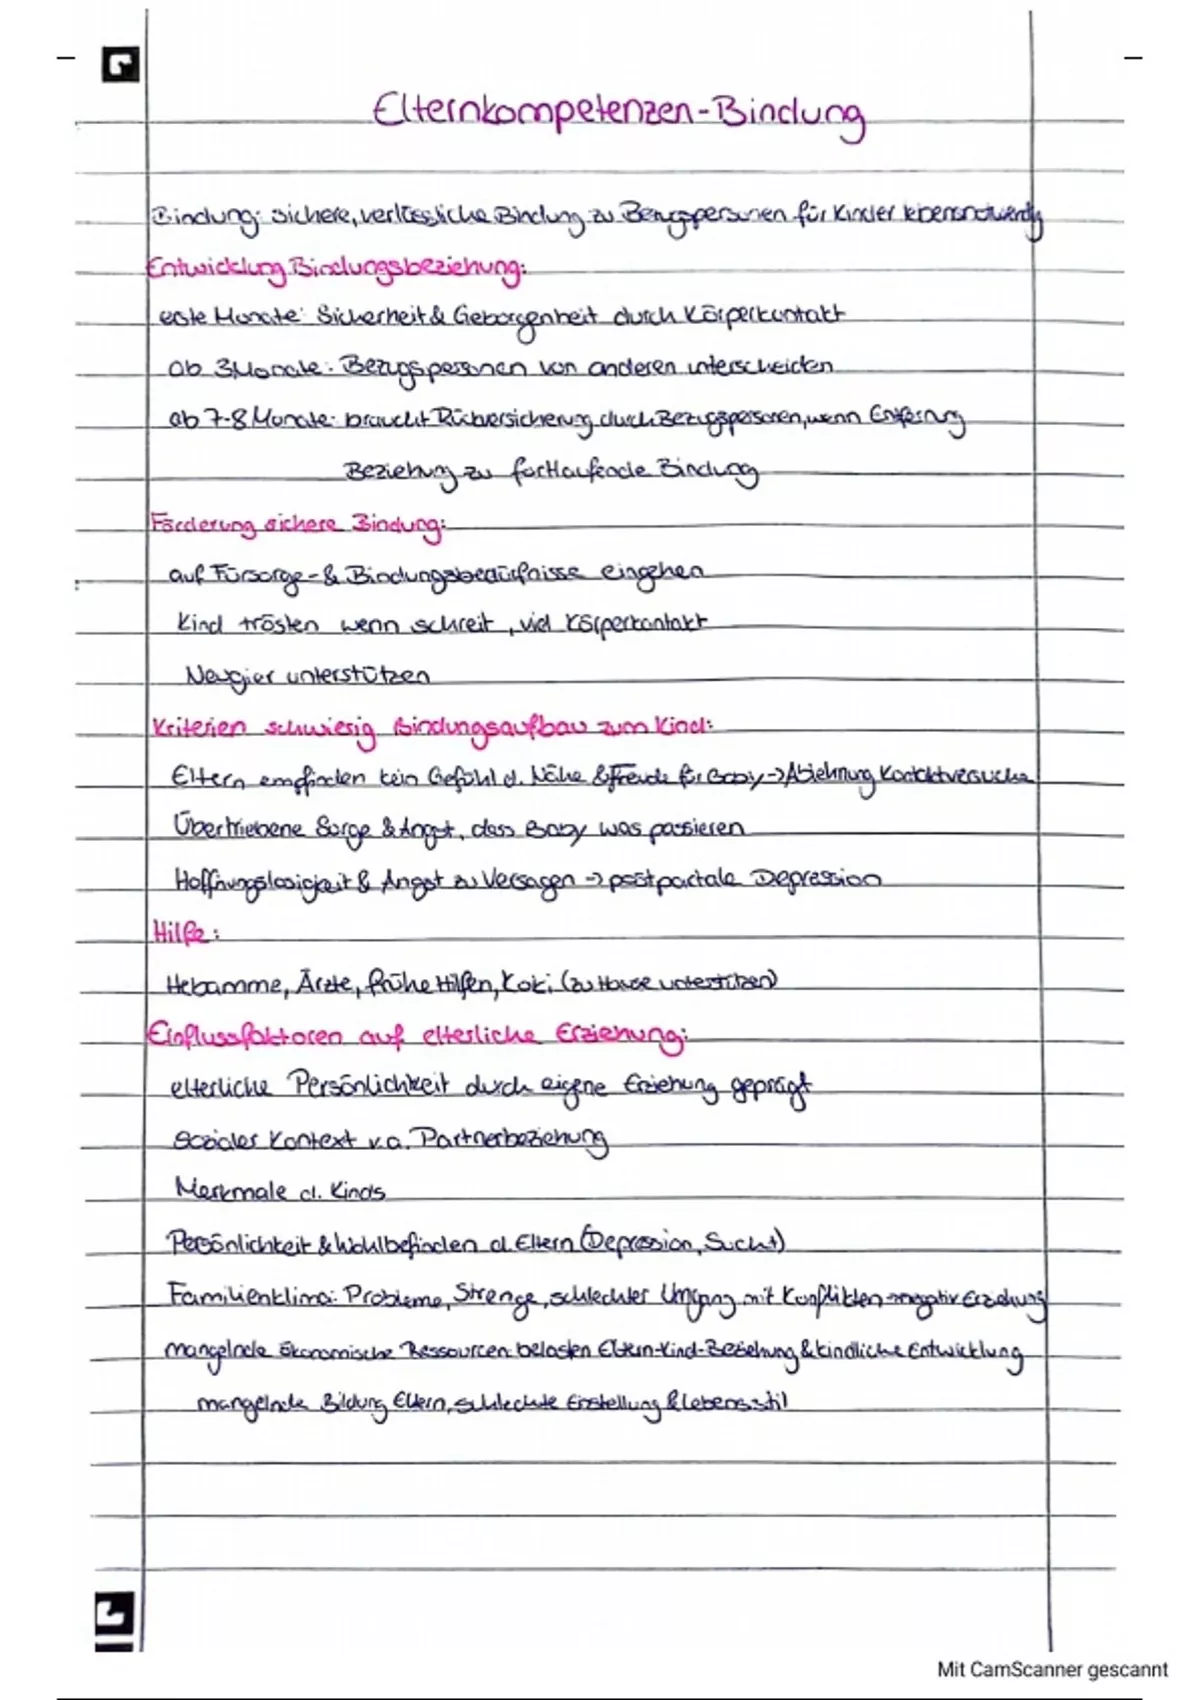 Elternkompetenzen-Bindung
Bindung: sichere, verlässliche Bindung zu Bezugspersonen für Kinder lebensnotwendig
Entwicklung Bindungsbeziehung:
erste Monate: Sicherheit & Geborgenheit durch Körperkontakt
ab 3 Monate: Bezugspersonen von anderen unterscheiden
ab 7-8 Monate: braucht Rückversicherung durch Bezugspersonen, wenn Entfernung
Beziehung zu fortlaufende Bindung
Förderung sichere Bindung:
auf Fürsorge- & Bindungsbedürfnisse eingehen
Kind trösten wenn schreit, viel Körperkontakt
Neugier unterstützen
Kriterien schwierig Bindungsaufbau zum Kind:
Eltern empfinden kein Gefühl d. Nähe & Freude für Baby → Ablehnung Kontaktversuche
Übertriebene Sorge & Angst, dass Baby was passieren
Hoffnungslosigkeit & Angst zu Versagen → postpartale Depression
Hilfe:
Hebamme, Ärzte, frühe Hilfen, Koki (zu Hause unterstützen)
Einflussfaktoren auf elterliche Erziehung:
elterliche Persönlichkeit durch eigene Erziehung geprägt
sozialer Kontext v.a. Partnerbeziehung
Merkmale d. Kinds
Persönlichkeit & Wohlbefinden d. Eltern (Depression, Sucht)
Familienklima: Probleme, Strenge, schlechter Umgang mit Konflikten → negativ Erziehung
mangelnde ökonomische Ressourcen: belasten Eltern-Kind-Beziehung & kindliche Entwicklung
mangelnde Bildung Eltern, schlechte Einstellung & Lebensstil
Mit CamScanner gescannt